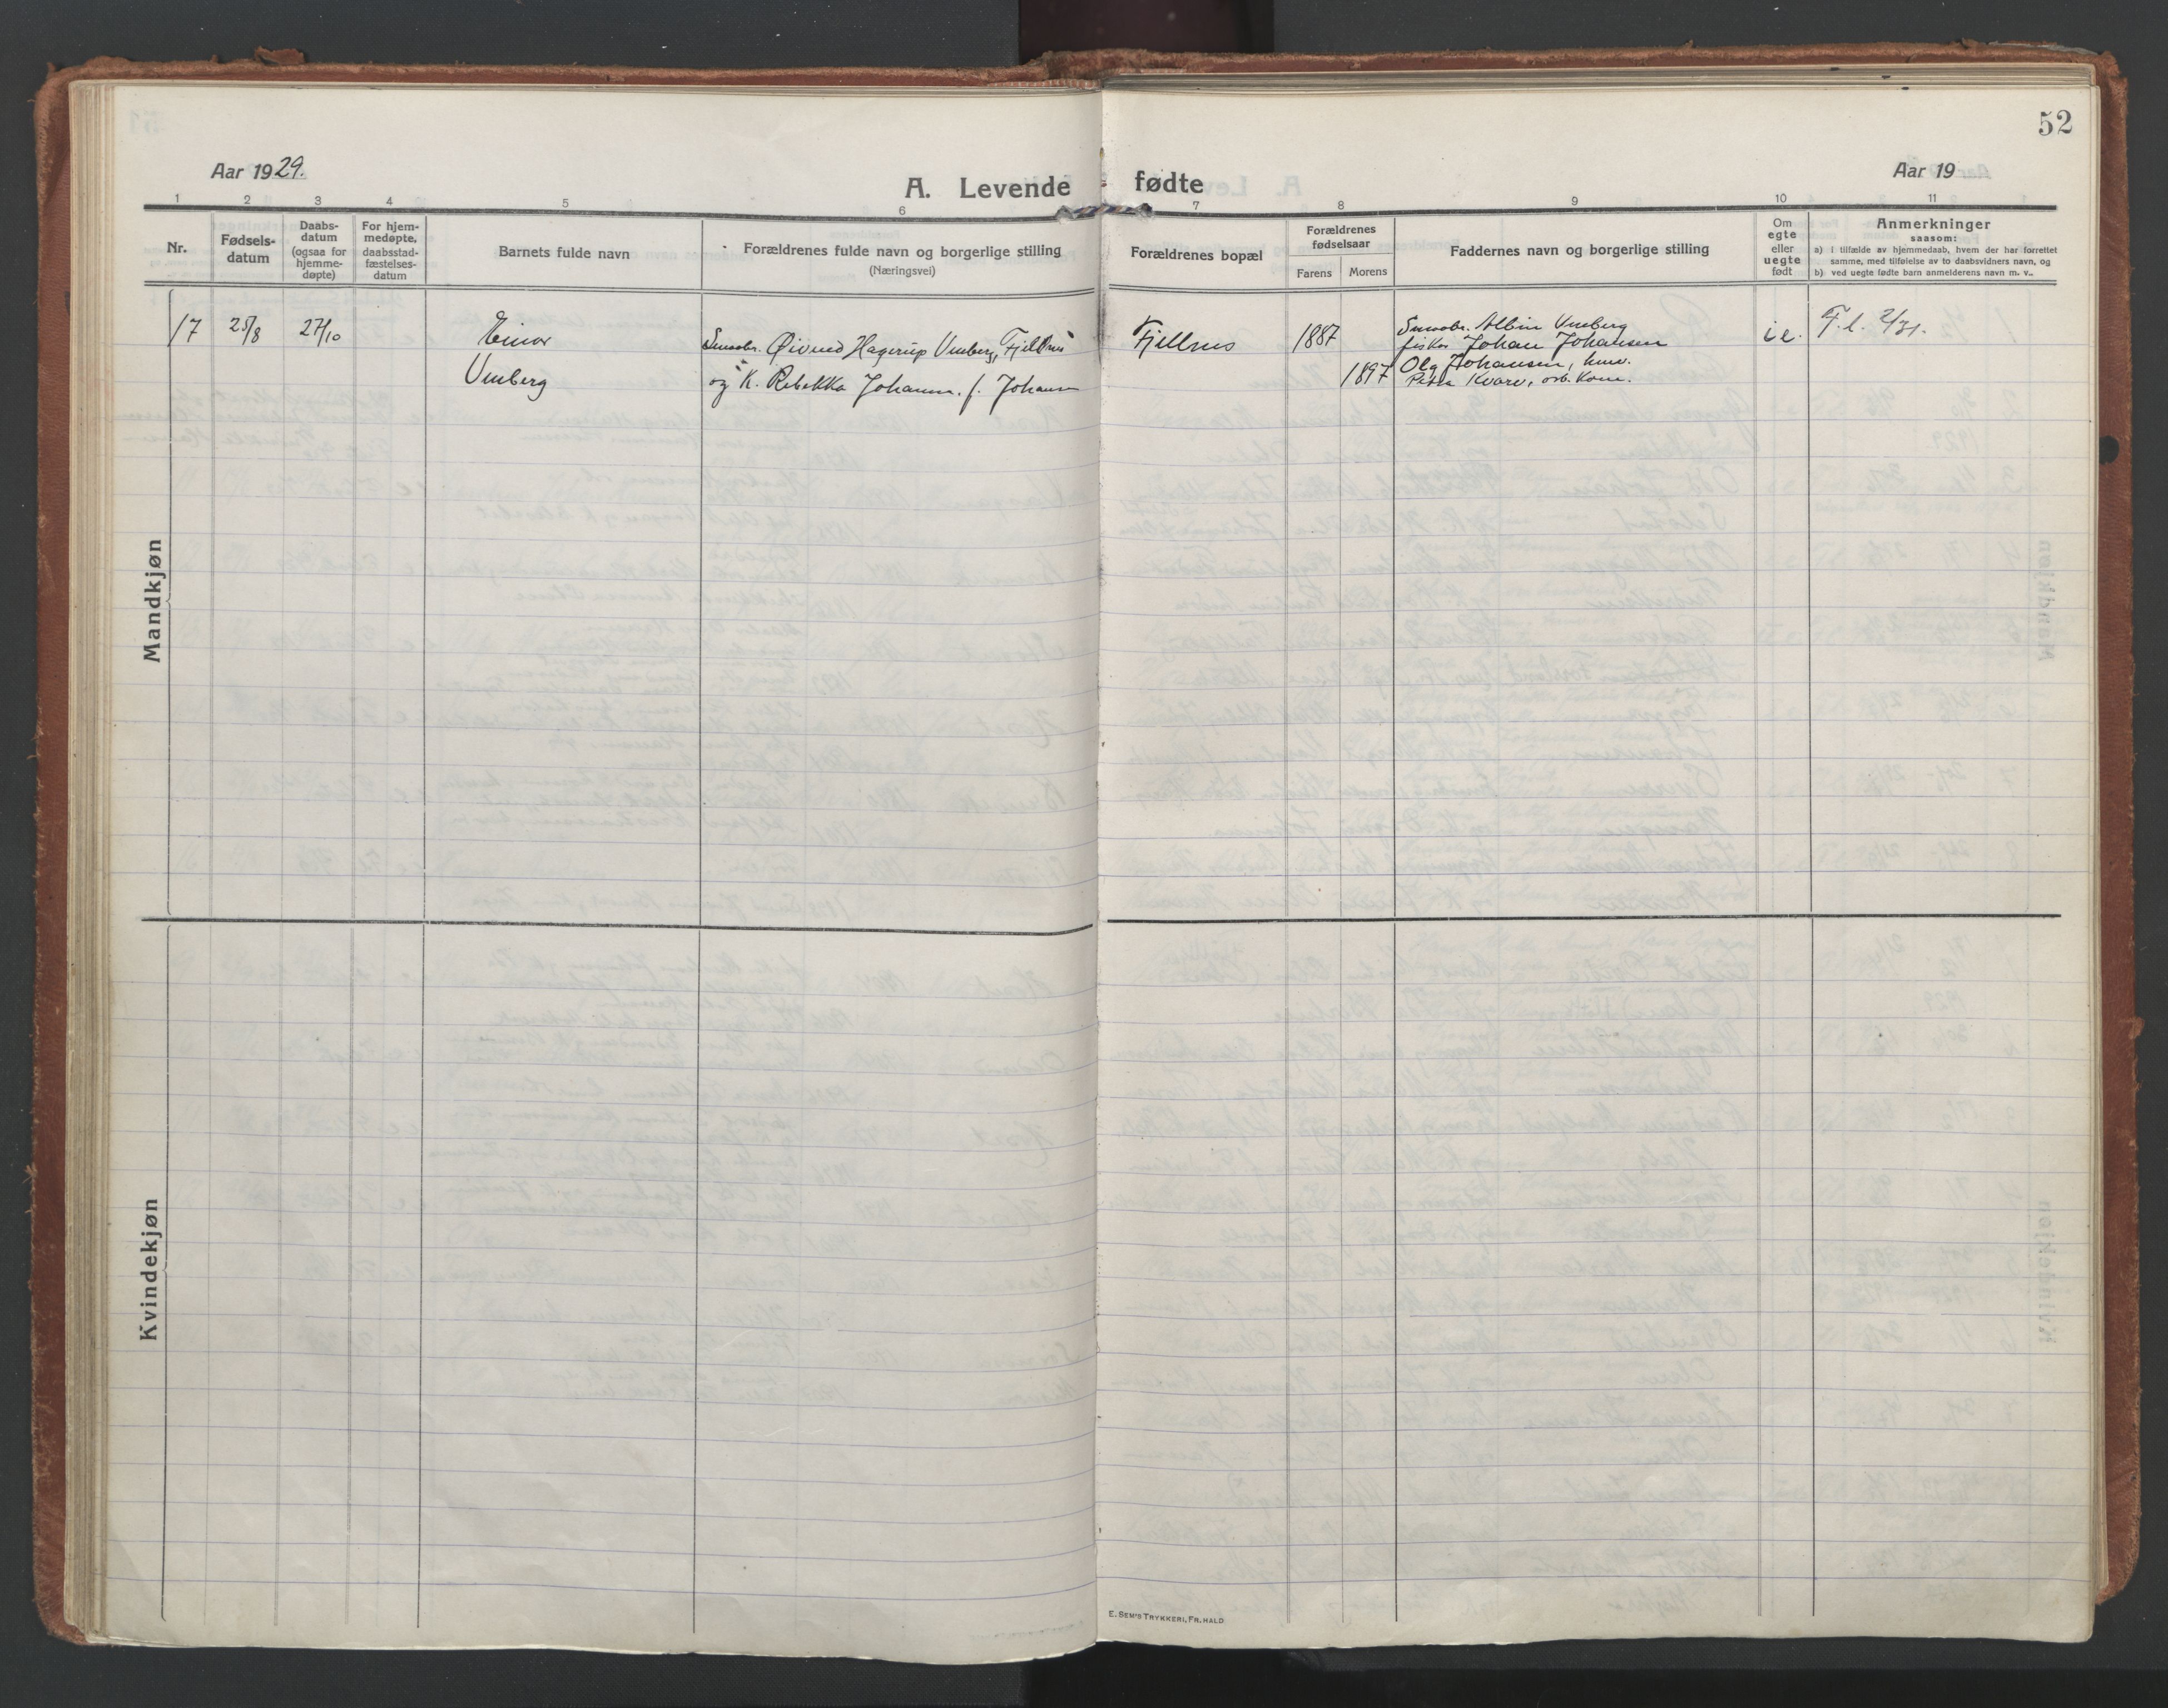 52
Aar 1929.
A. Levende fødte
Aar 19
1 2 3 4 5 6 7 8 9 10 11
Nr.
Fødsels-
datum
Daabs-
datum
(ogsaa for
hjemme-
døpte)
For hjem-
medøpte,
daabsstad-
fæstelses-
datum
Barnets fulde navn
Forældrenes fulde navn og borgerlige stilling
(Næringsvei)
Forældrenes bopæl
Forældrenes
fødselsaar
Farens Morens
Faddernes navn og borgerlige stilling
Om
egte
eller
uegte
født
Anmerkninger
saasom:
a) i tilfælde av hjemmedaab, hvem der har forrettet
samme, med tilføielse av to daabsvidners navn, og
b) ved uegte fødte barn anmelderens navn m. v..
Mandkjøn
17 25/8 27/10
Einar
Vinberg
Smaabr. Øivind Hagerup Vinberg, Fjellnes
og K. Rebekka Johansen. f. Johansen
Fjellnes
1887
1897
Smaabr. Albin Vinberg
fisker Johan Johansen
Olg Johansen, husv.
Petra Kvarv, arb. kone.
i e.
F. l. 2/31.
Kvindekjøn
E. SEM'S TRYKKERI, FR. HALD